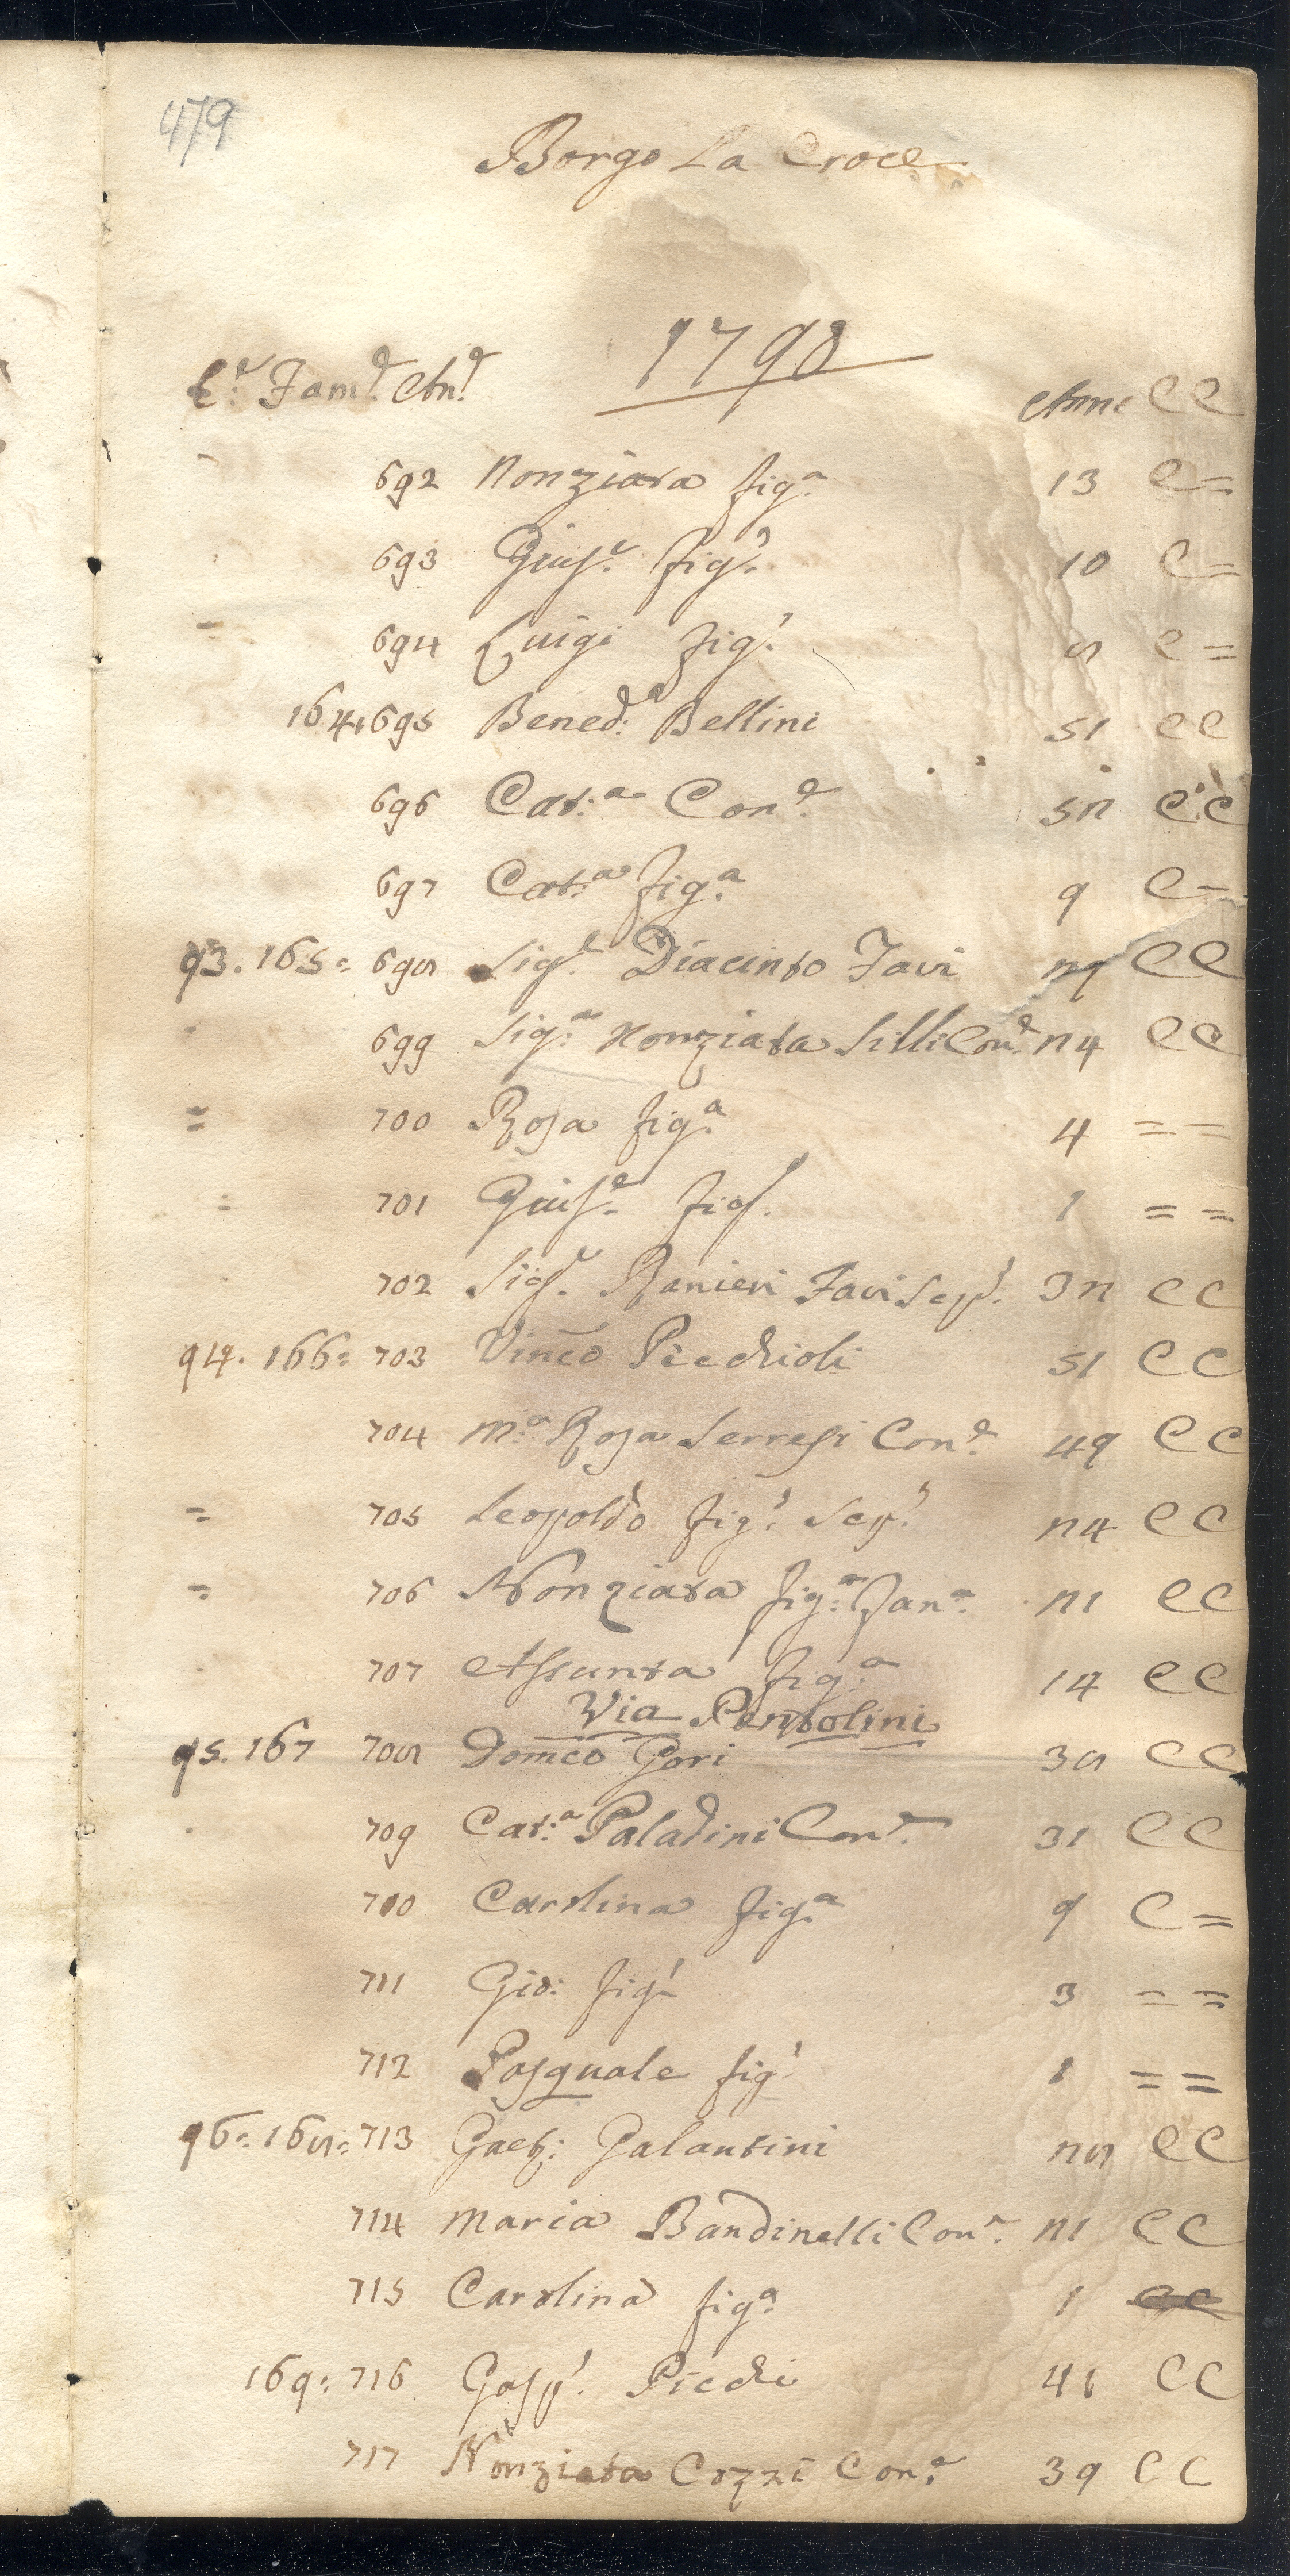 479
Borgo La Croce
1798
C:e Fam:e An:e Anni CC
692 Nonziata fig:a 13 C=
693 Gius:e fig:o 10 C=
694 Luigi fig:o 8 C=
164.695 Bened:o Bellini 51 CC
696 Cat:a Con:e 52 CC
697 Cat:a fig:a 9 C=
93. 165= 698 Sig:e Diacinto Favi 29 CC
699 Sig:a Nonziata Silli Con:e 24 CC
= 700 Rosa fig:a 4 = =
= 701 Gius:e fig:o 1 = =
702 Sig:e Ranieri Favi Scap:o 32 CC
94. 166= 703 Vinco Picchioli 51 CC
704 M:a Rosa Serresi Con:e 49 CC
= 705 Leopoldo fig:o Scap:o 24 CC
= 706 Nonziata fig:a Fan:a 21 CC
707 Assunta fig:a 14 CC
Via Pentolini
95. 167 708 Domco Gori 38 CC
709 Cat:a Paladini Con:e 31 CC
710 Carolina fig:a 9 C=
711 Gio: fig:o 3 = =
712 Pasquale fig:o 1 = =
96= 168= 713 Gaet: Galantini 28 CC
714 Maria Bandinelli Con:e 21 CC
715 Carolina fig:a 1 CC
169= 716 Gasp:o Picchi 41 CC
717 Nonziata Cozzi Con:e 39 CC